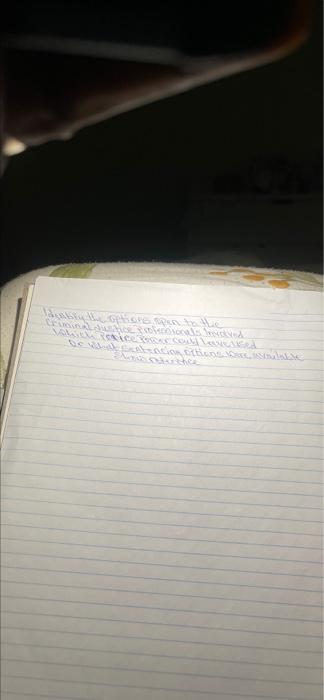 Identify the options open to the
criminal justice professionals involved
Which police power could have used
Or what sentencing options were available
Show